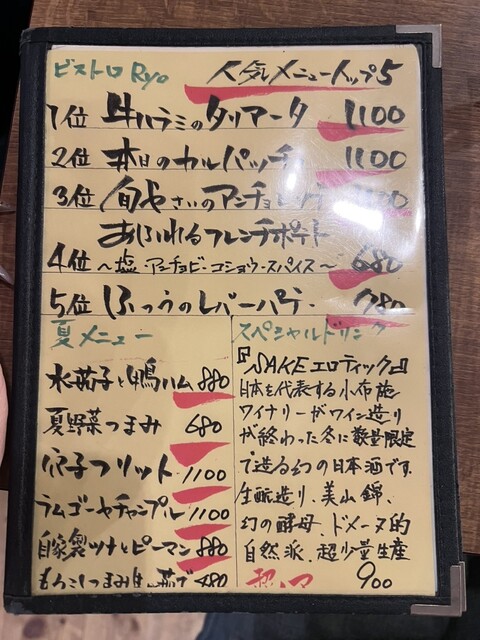 ビストロ Ryo 人気メニュートップ5
1位 牛ハラミのタリアータ 1100
2位 本日のカルパッチョ 1100
3位 旬やさいのアンチョビ
あふれるフレンチポテト
4位 ～塩・アンチョビ・コショウ・スパイス～ 680
5位 ふつうのレバーパテ 780
夏メニュー
水茄子と鴨ハム 880
夏野菜つまみ 680
穴子フリット 1100
ラムゴーヤチャンプル 1100
自家製ツナとピーマン 880
もろこしつまみ 茹で 480
スペシャルドリンク
『SAKEエロティック』
日本を代表する小布施
ワイナリーがワイン造り
が終わった冬に数量限定
で造る幻の日本酒です
生酛造り、美山錦、
幻の酵母、ドメーヌ的
自然派、超少量生産
900